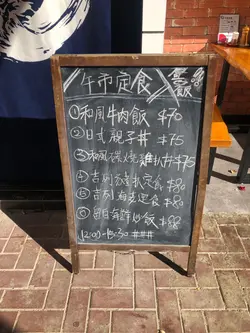 午市定食
飯
①和風牛肉飯 $70
②日式親子丼 $75
③和風炭燒雞扒丼 $75
④吉列豬扒定食 $80
⑤吉列 定食 $80
⑥ 日海鮮炒飯 $82
12:00-15:30